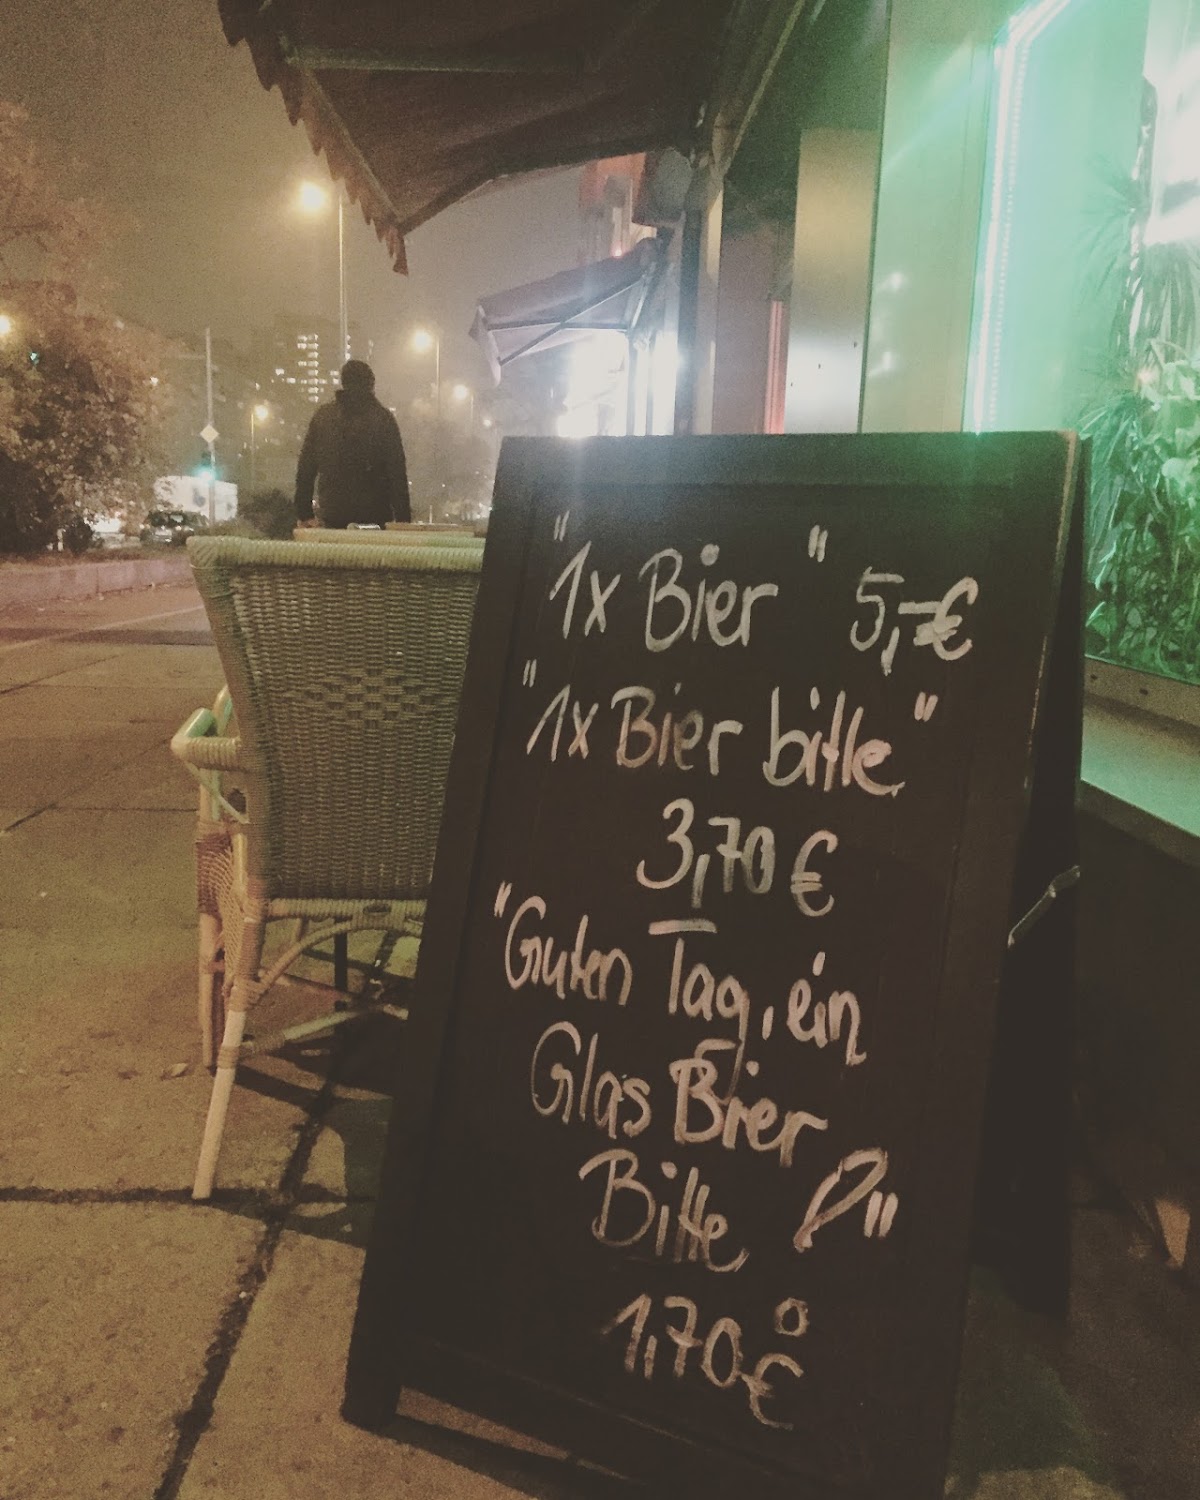 "1x Bier" 5,-€
"1x Bier bitte"
3,70€
"Guten Tag, ein
Glas Bier
Bitte ?"
1,70€